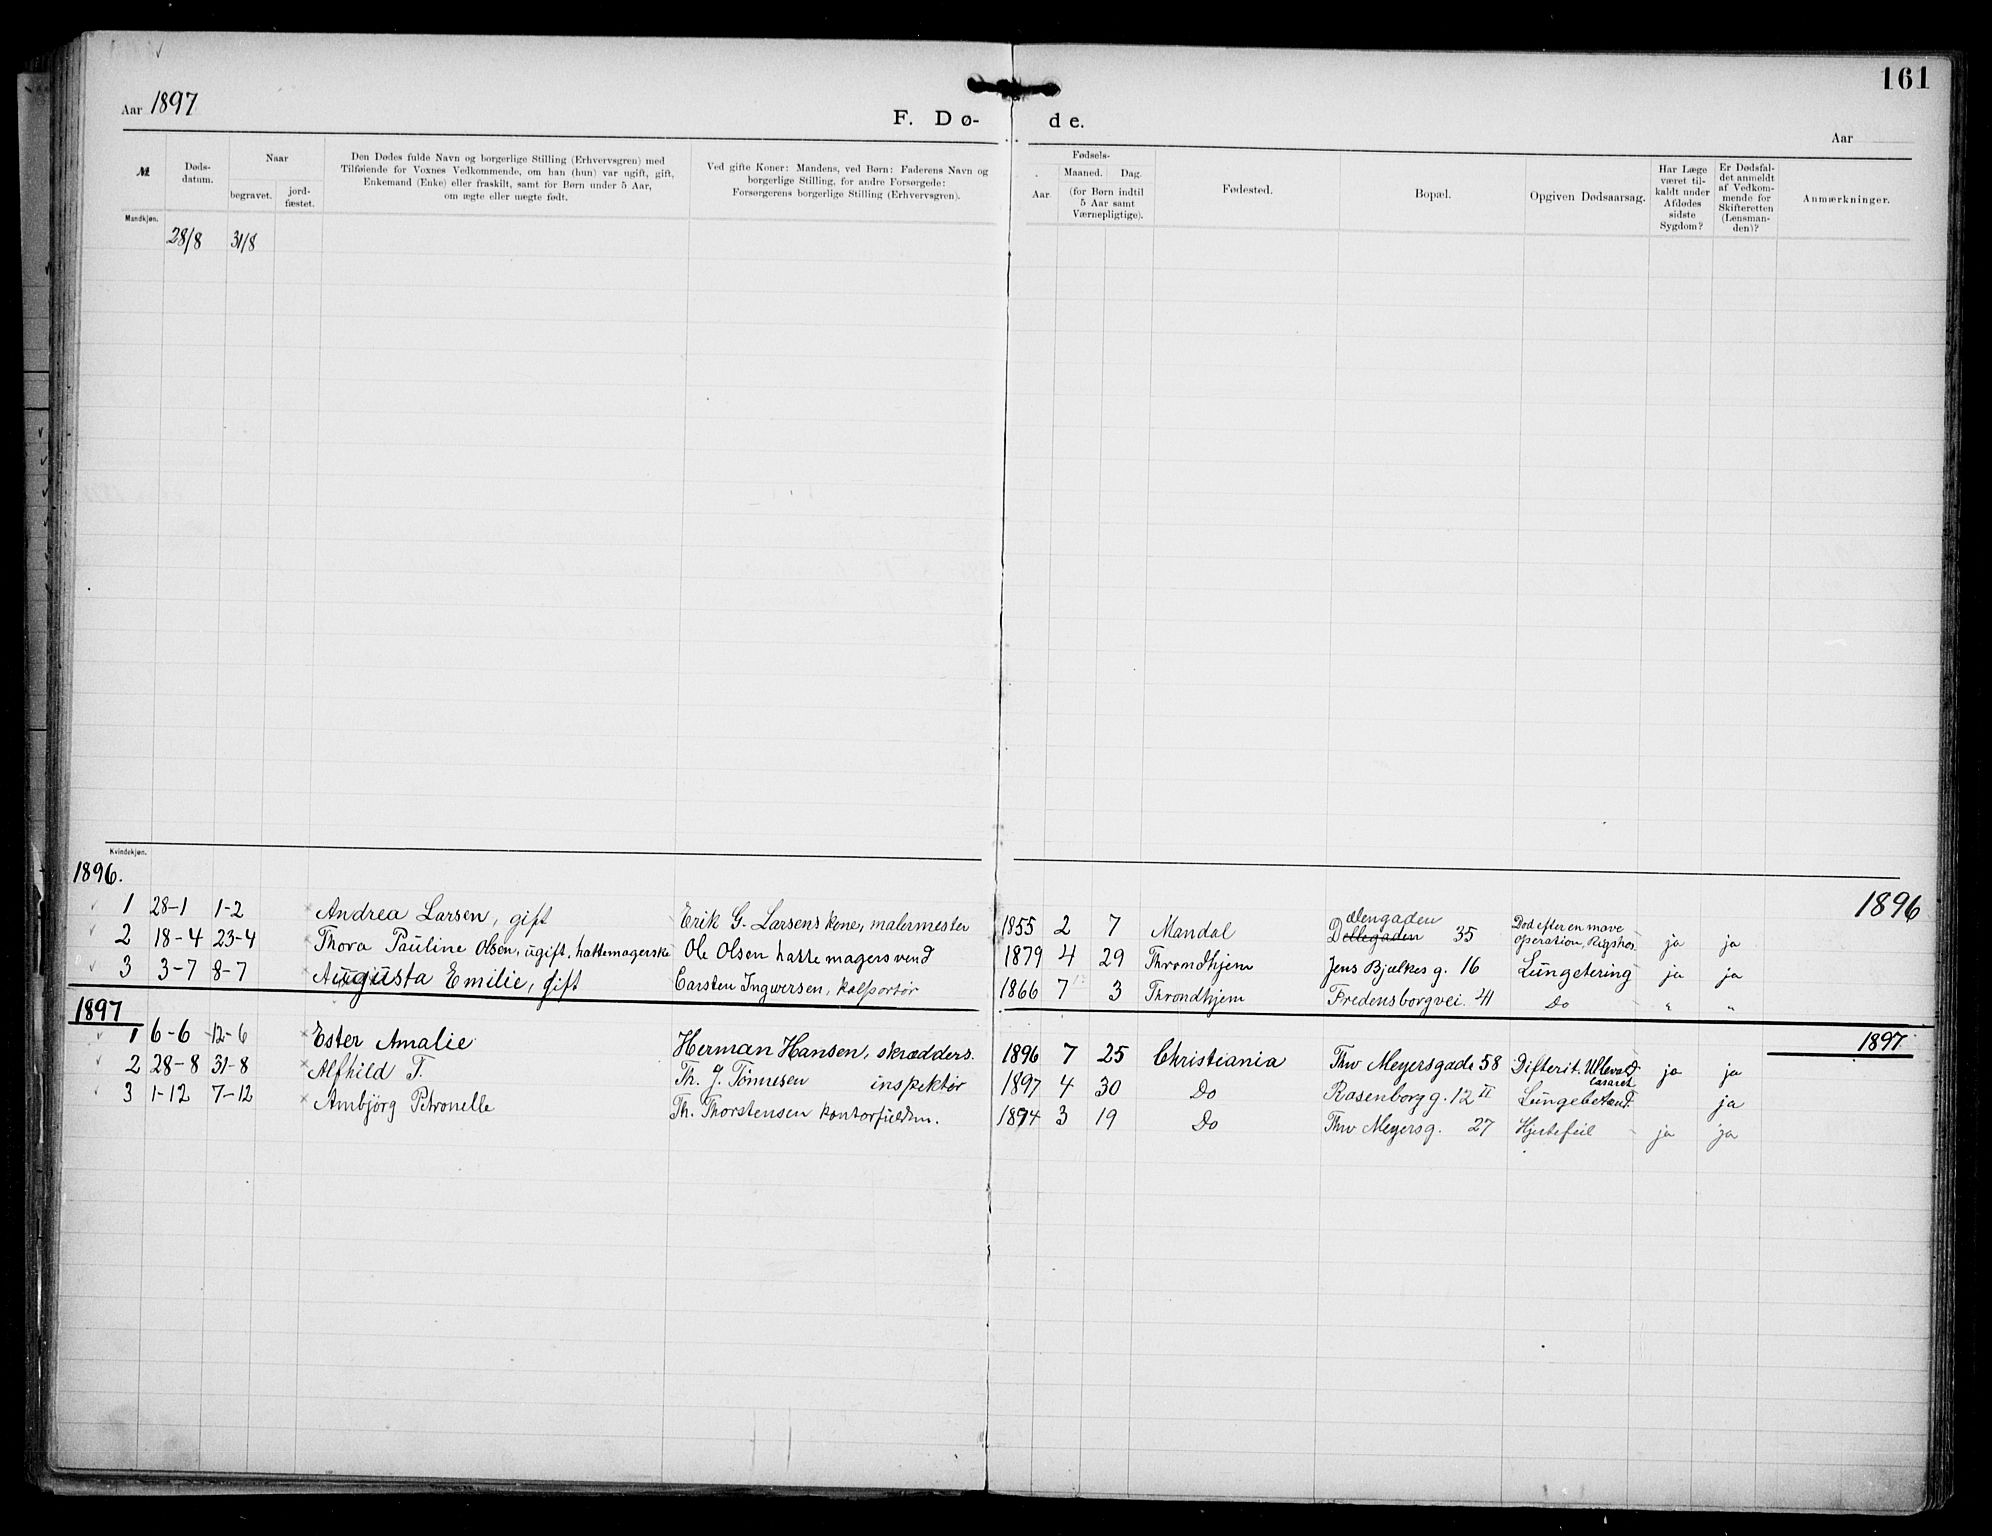 161
Aar 1897
F. Dø- de.
Aar
№ Døds-datum. Naar begravet. jord-fæstet. Den Dødes fulde Navn og borgerlige Stilling (Erhvervsgren) med Tilføiende for Voxnes Vedkommende, om han (hun) var ugift, gift, Enkemand (Enke) eller fraskilt, samt for Børn under 5 Aar, om ægte eller uægte født. Ved gifte Koner: Mandens, ved Børn: Faderens Navn og borgerlige Stilling, for andre Forsørgede: Forsørgerens borgerlige Stilling (Erhvervsgren). Fødsels- Aar. Maaned. Dag. (for Børn indtil 5 Aar samt Værnepligtige). Fødested. Bopæl. Opgiven Dødsaarsag. Har Læge været til-kaldt under Afdødes sidste Sygdom? Er Dødsfal-det anmeldt af Vedkom-mende for Skifteretten (Lensman-den)? Anmærkninger.
Mandkjøn.
28/8 31/8
Kvindekjøn.
1896. 1896
1 28-1 1-2 Andrea Larsen, gift Erik G. Larsens kone, malermester 1855 2 7 Mandal Dællegaden ælengaden 35 Død efter en mave operation, Rigshos. ja ja
2 18-4 23-4 Thora Pauline Olsen, ugift, hattemagerske Ole Olsen hattemagersvend 1879 4 29 Throndhjem Jens Bjelkes g. 16 Lungetering ja ja
3 3-7 8-7 Augusta Emilie, gift Carsten Ingwersen, kolportør 1866 7 3 Throndhjem Fredensborgvei. 41 Do " "
1897 1897
1 6-6 12-6 Ester Amalie Herman Hansen, skrædders. 1896 7 25 Christiania Thv Meyersgade 58 Difterit. Ullevold Lasaret ja ja
2 28-8 31-8 Alfhild T. Th. J. Tønnesen inspektør 1897 4 30 Do Rosenborg g. 12 II Lungebetænd. ja
3 1-12 7-12 Ambjörg Petronelle Th. Thorstensen kontorfuldm. 1894 3 19 Do Thv Meyersg. 27 Hjertefeil ja ja